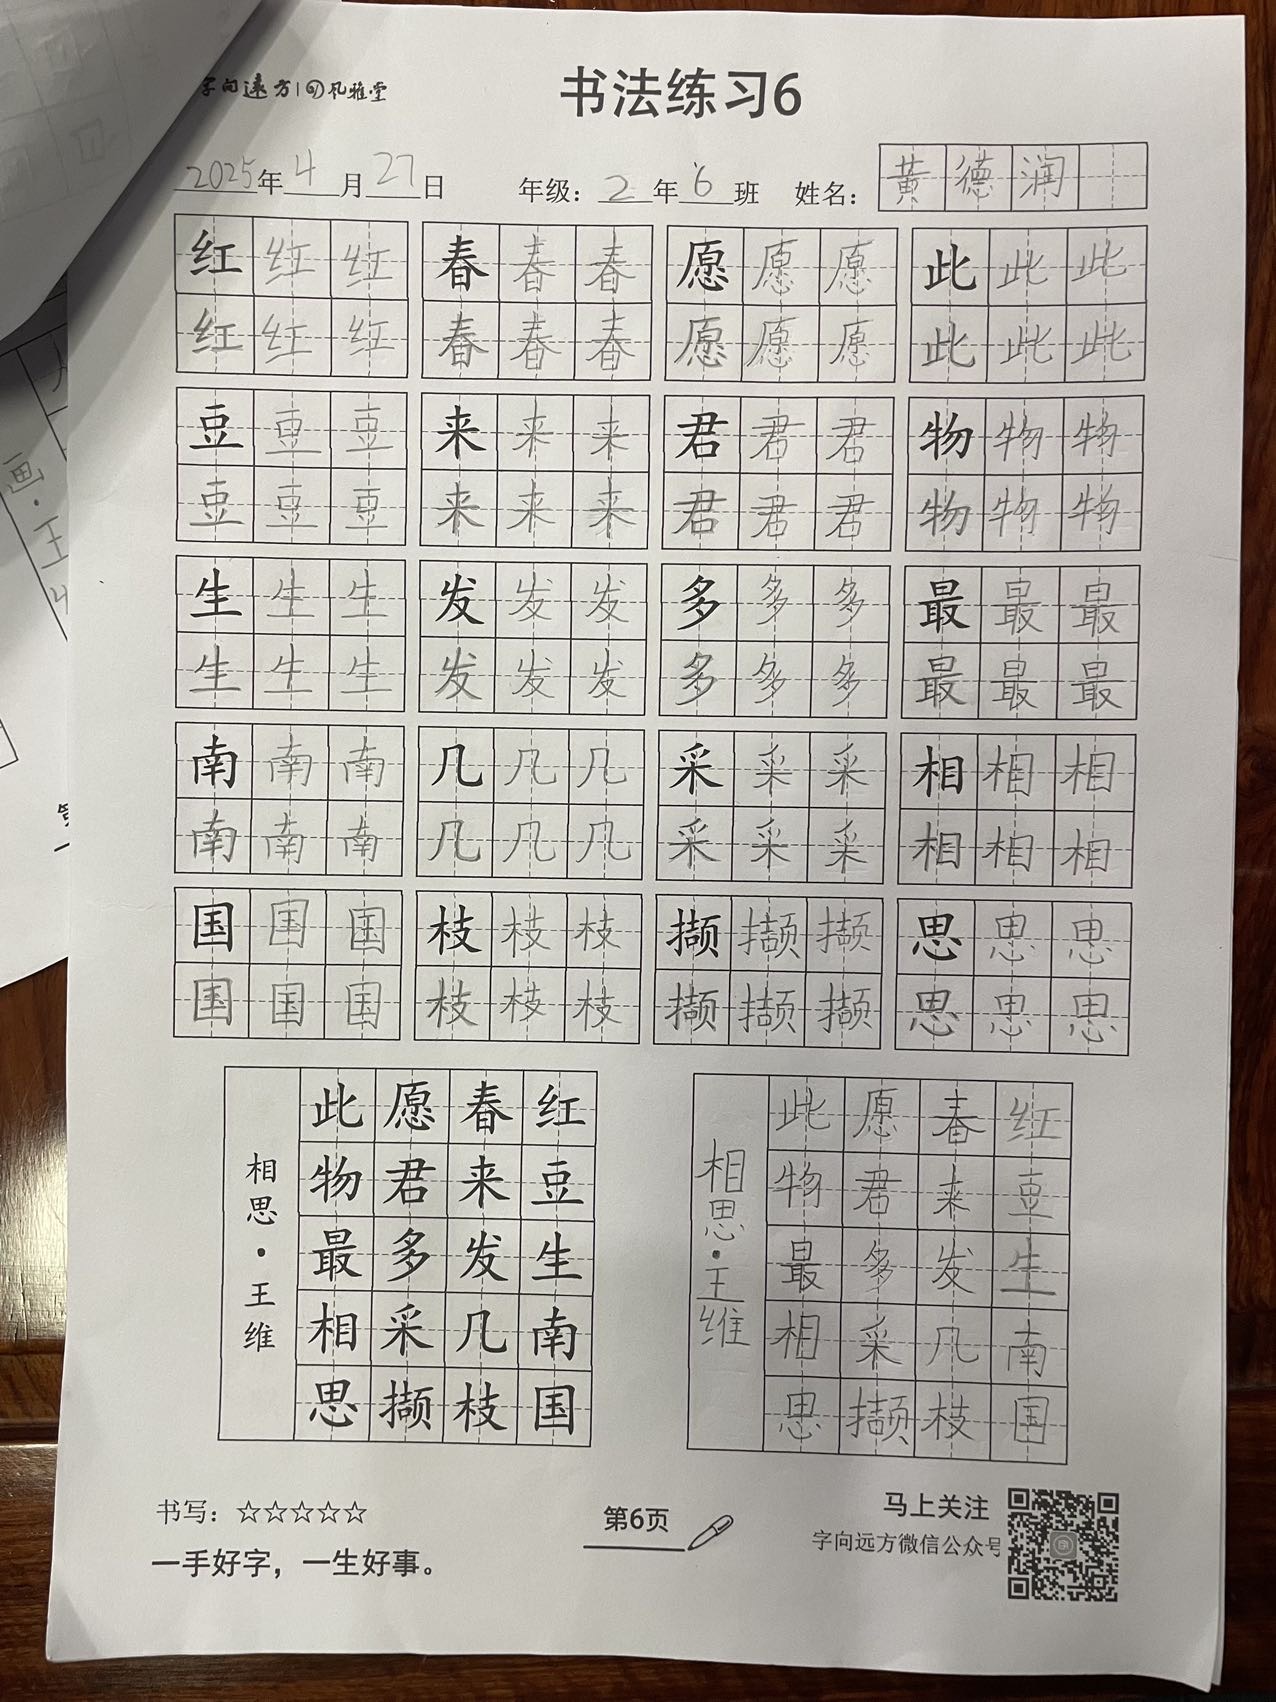 字向远方|风雅堂
书法练习6
2025年4月27日 年级：2年6班 姓名：黄德润
红红红 春春春 愿愿愿 此此此
红红红 春春春 愿愿愿 此此此
豆豆豆 来来来 君君君 物物物
豆豆豆 来来来 君君君 物物物
生生生 发发发 多多多 最最最
生生生 发发发 多多多 最最最
南南南 几几几 采采采 相相相
南南南 几几几 采采采 相相相
国国国 枝枝枝 撷撷撷 思思思
国国国 枝枝枝 撷撷撷 思思思
红豆生南国
春来发几枝
愿君多采撷
此物最相思
相思·王维
红豆生南国
春来发几枝
愿君多采撷
此物最相思
相思·王维
书写：☆☆☆☆☆
一手好字，一生好事。
第6页
马上关注
字向远方微信公众号
画·王